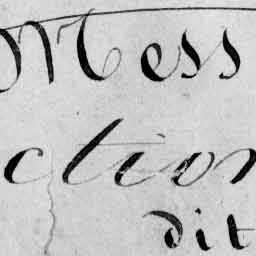 Mess
ction
dit